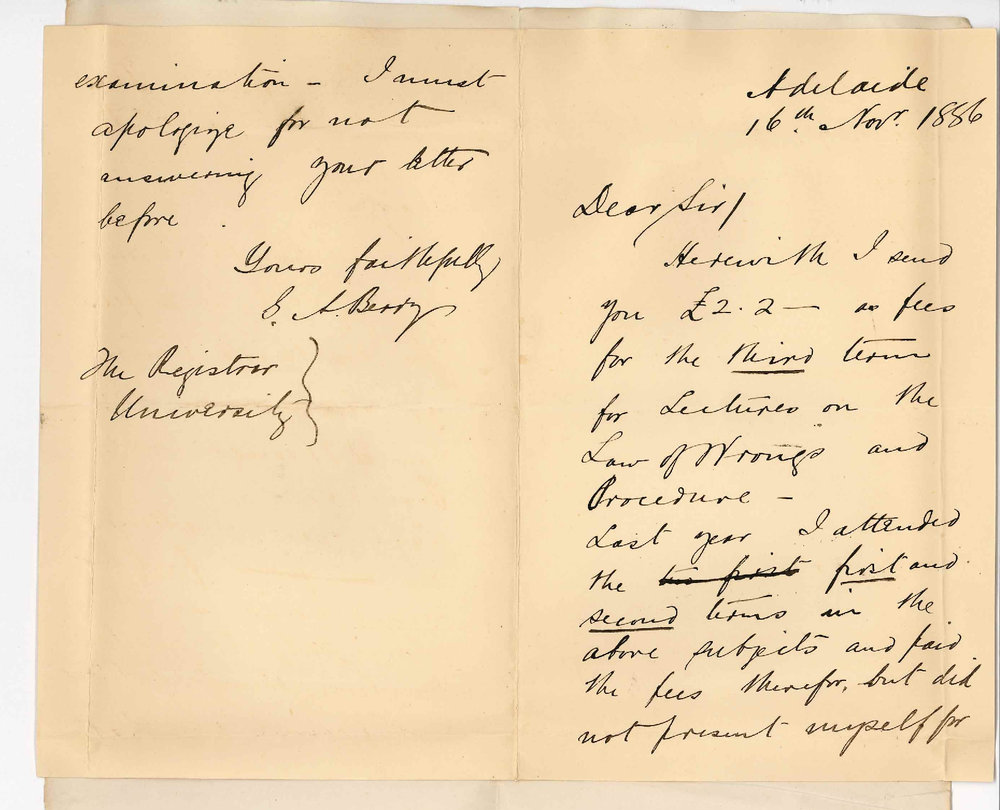 Adelaide
16th Novr. 1886
Dear Sir/
Herewith I send
you £2.2— as fees
for the third term
for Lectures on the
Law of Wrongs and
Procedure —
Last year I attended
the two first first and
second terms in the
above subjects and paid
the fees therefor, but did
not present myself for
examination — I must
apologize for not
answering your letter
before.
Yours faithfully
E. A. Berry
The Registrar
University